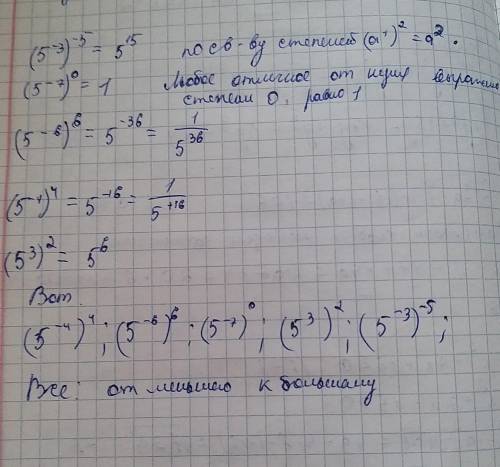 (5⁻³)⁻⁵ = 5¹⁵ по св-ву степеней (a¹)² = a².
(5⁻⁷)⁰ = 1 Любое отличное от нуля выражение
степени 0, равно 1
(5⁻⁶)⁶ = 5⁻³⁶ = 1/5³⁶
(5⁻⁴)⁴ = 5⁻¹⁶ = 1/5⁺¹⁶
(5³)² = 5⁶
Вот.
(5⁻⁴)⁴; (5⁻⁶)⁶; (5⁻⁷)⁰; (5³)²; (5⁻³)⁻⁵;
Все: от меньшего к большему